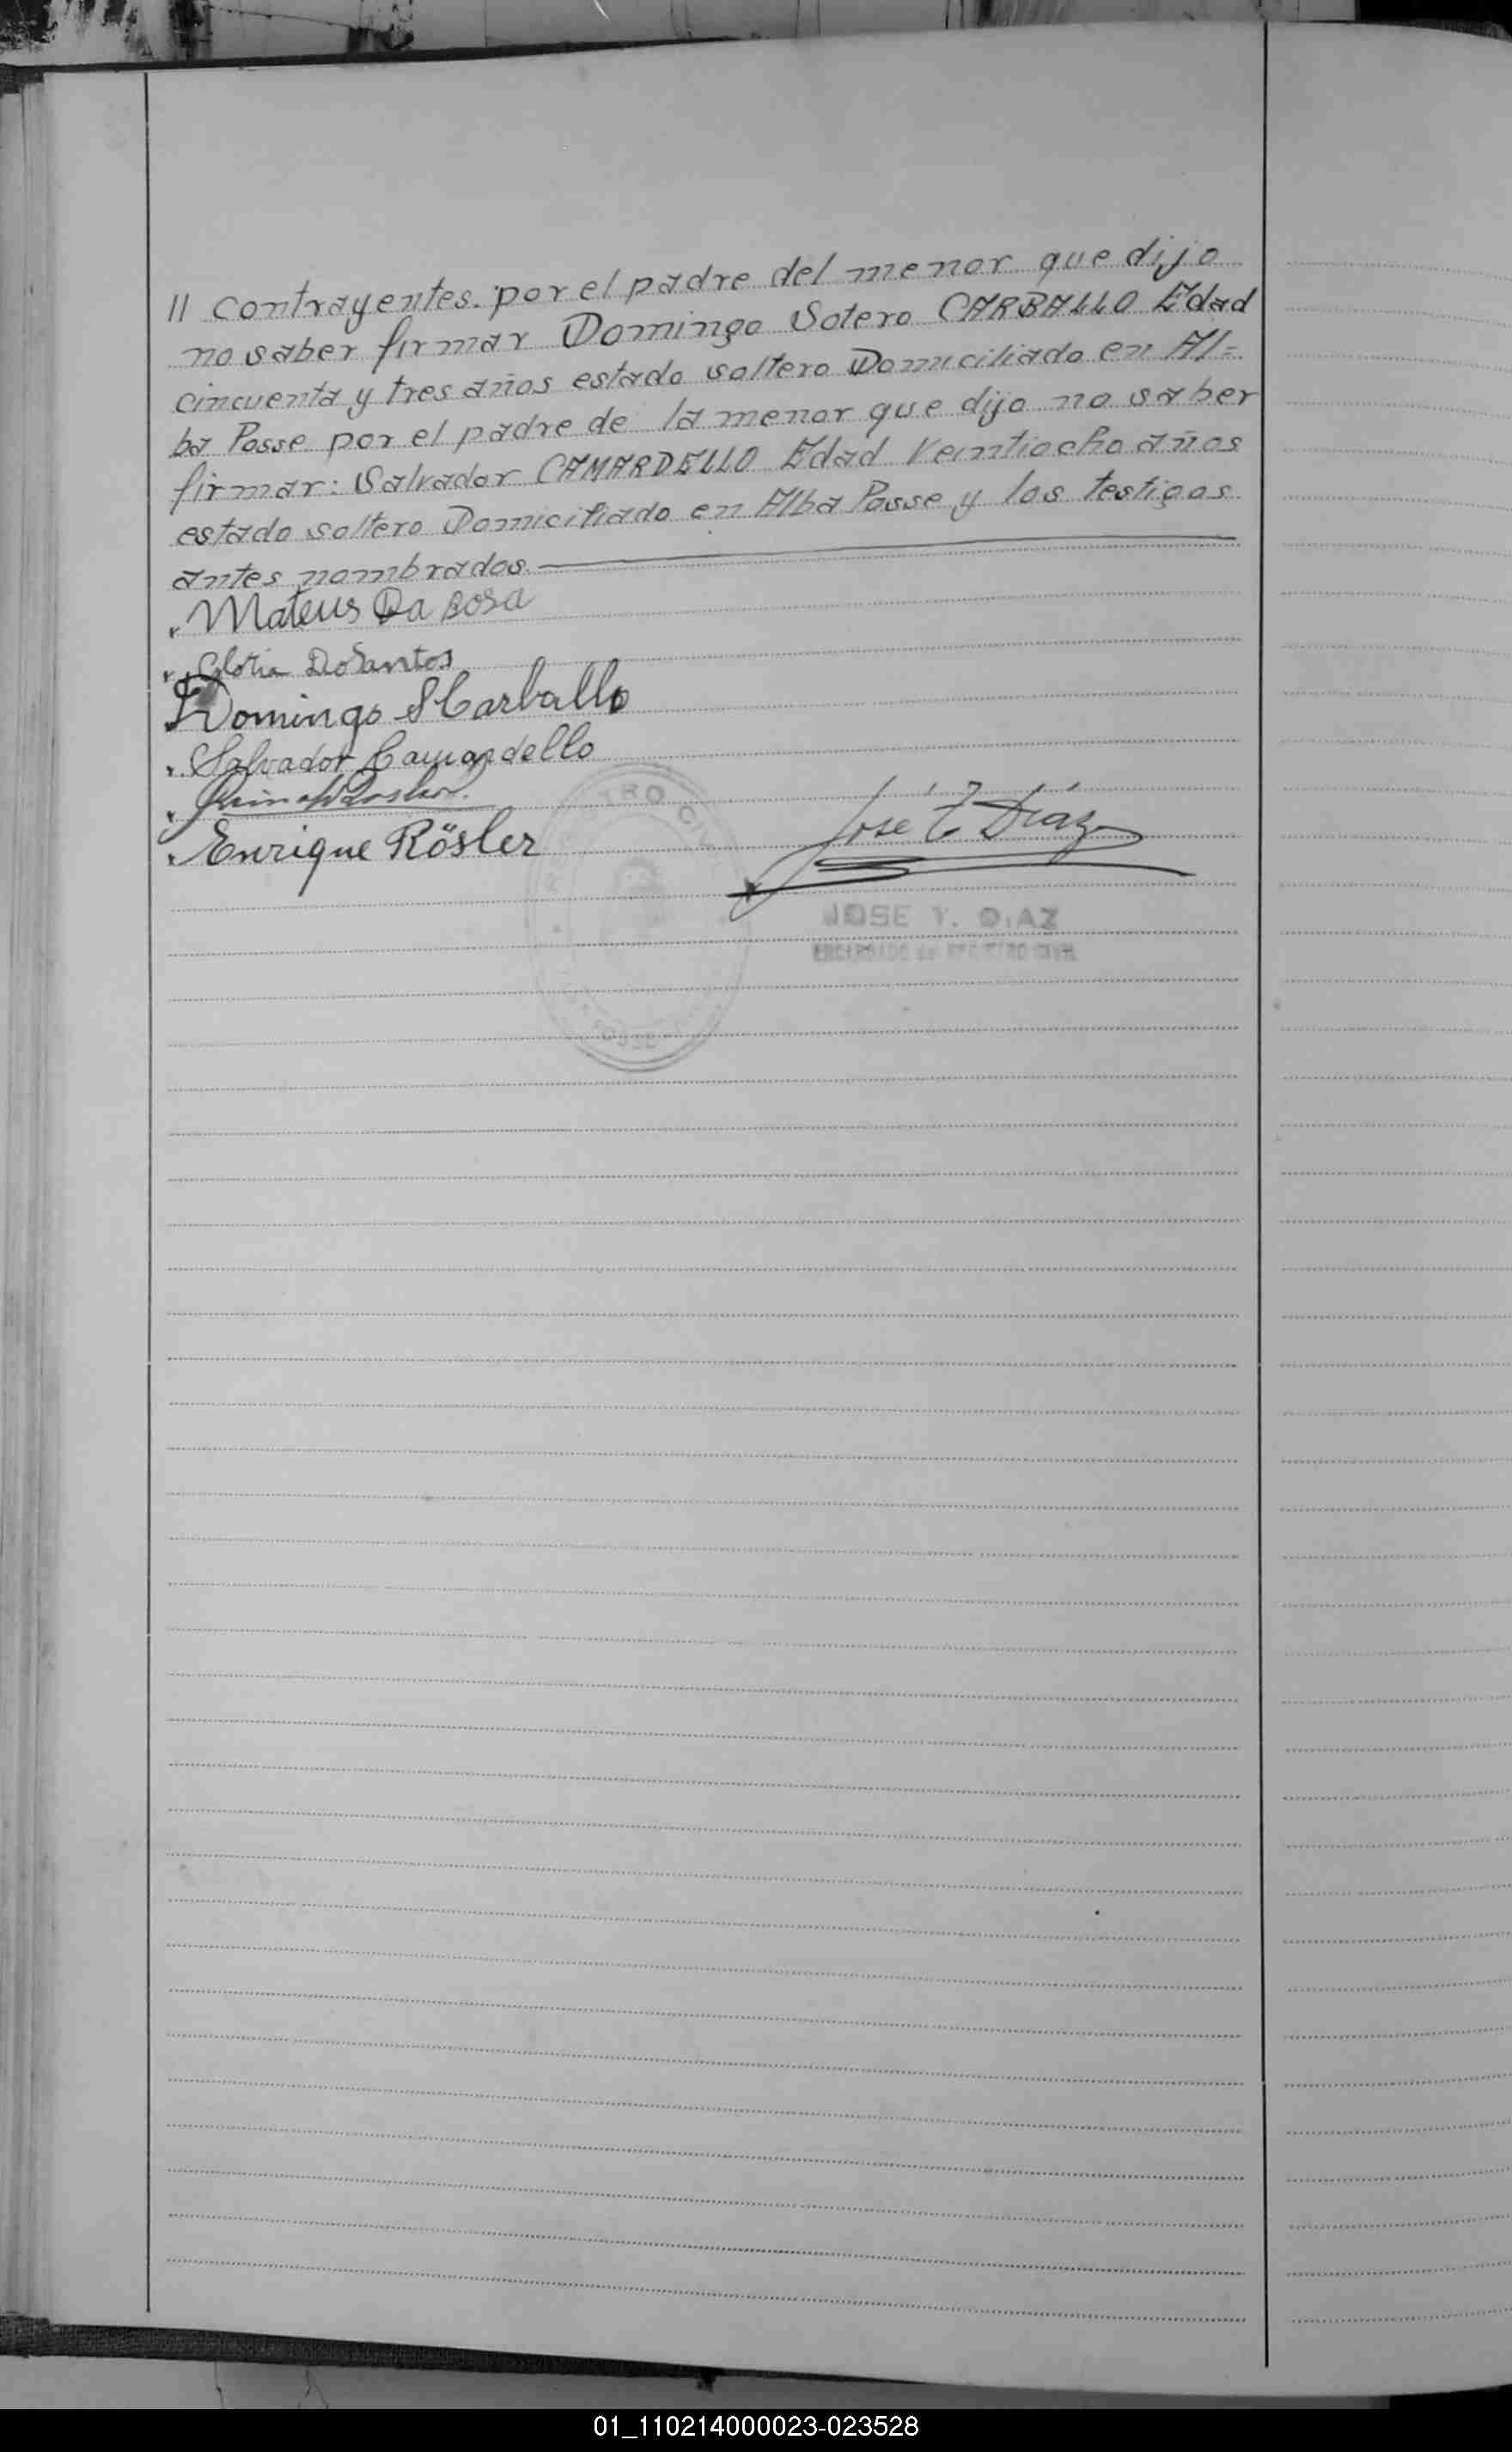 // contrayentes. por el padre del menor que dijo
no saber firmar Domingo Sotero CARBALLO Edad
cincuenta y tres años estado soltero Domiciliado en Al=
ba Posse por el padre de la menor que dijo no saber
firmar: Salvador CAMARDELLO Edad Veintiocho años
estado soltero Domiciliado en Alba Posse y los testigos
antes nombrados.
Mateus Da Rosa
Gloria Do Santos
Domingo S Carballo
Salvador Camardello
Enrique Rösler
José Y Díaz
JOSE Y. DIAZ
ENCARGADO del REGISTRO CIVIL
01_110214000023-023528